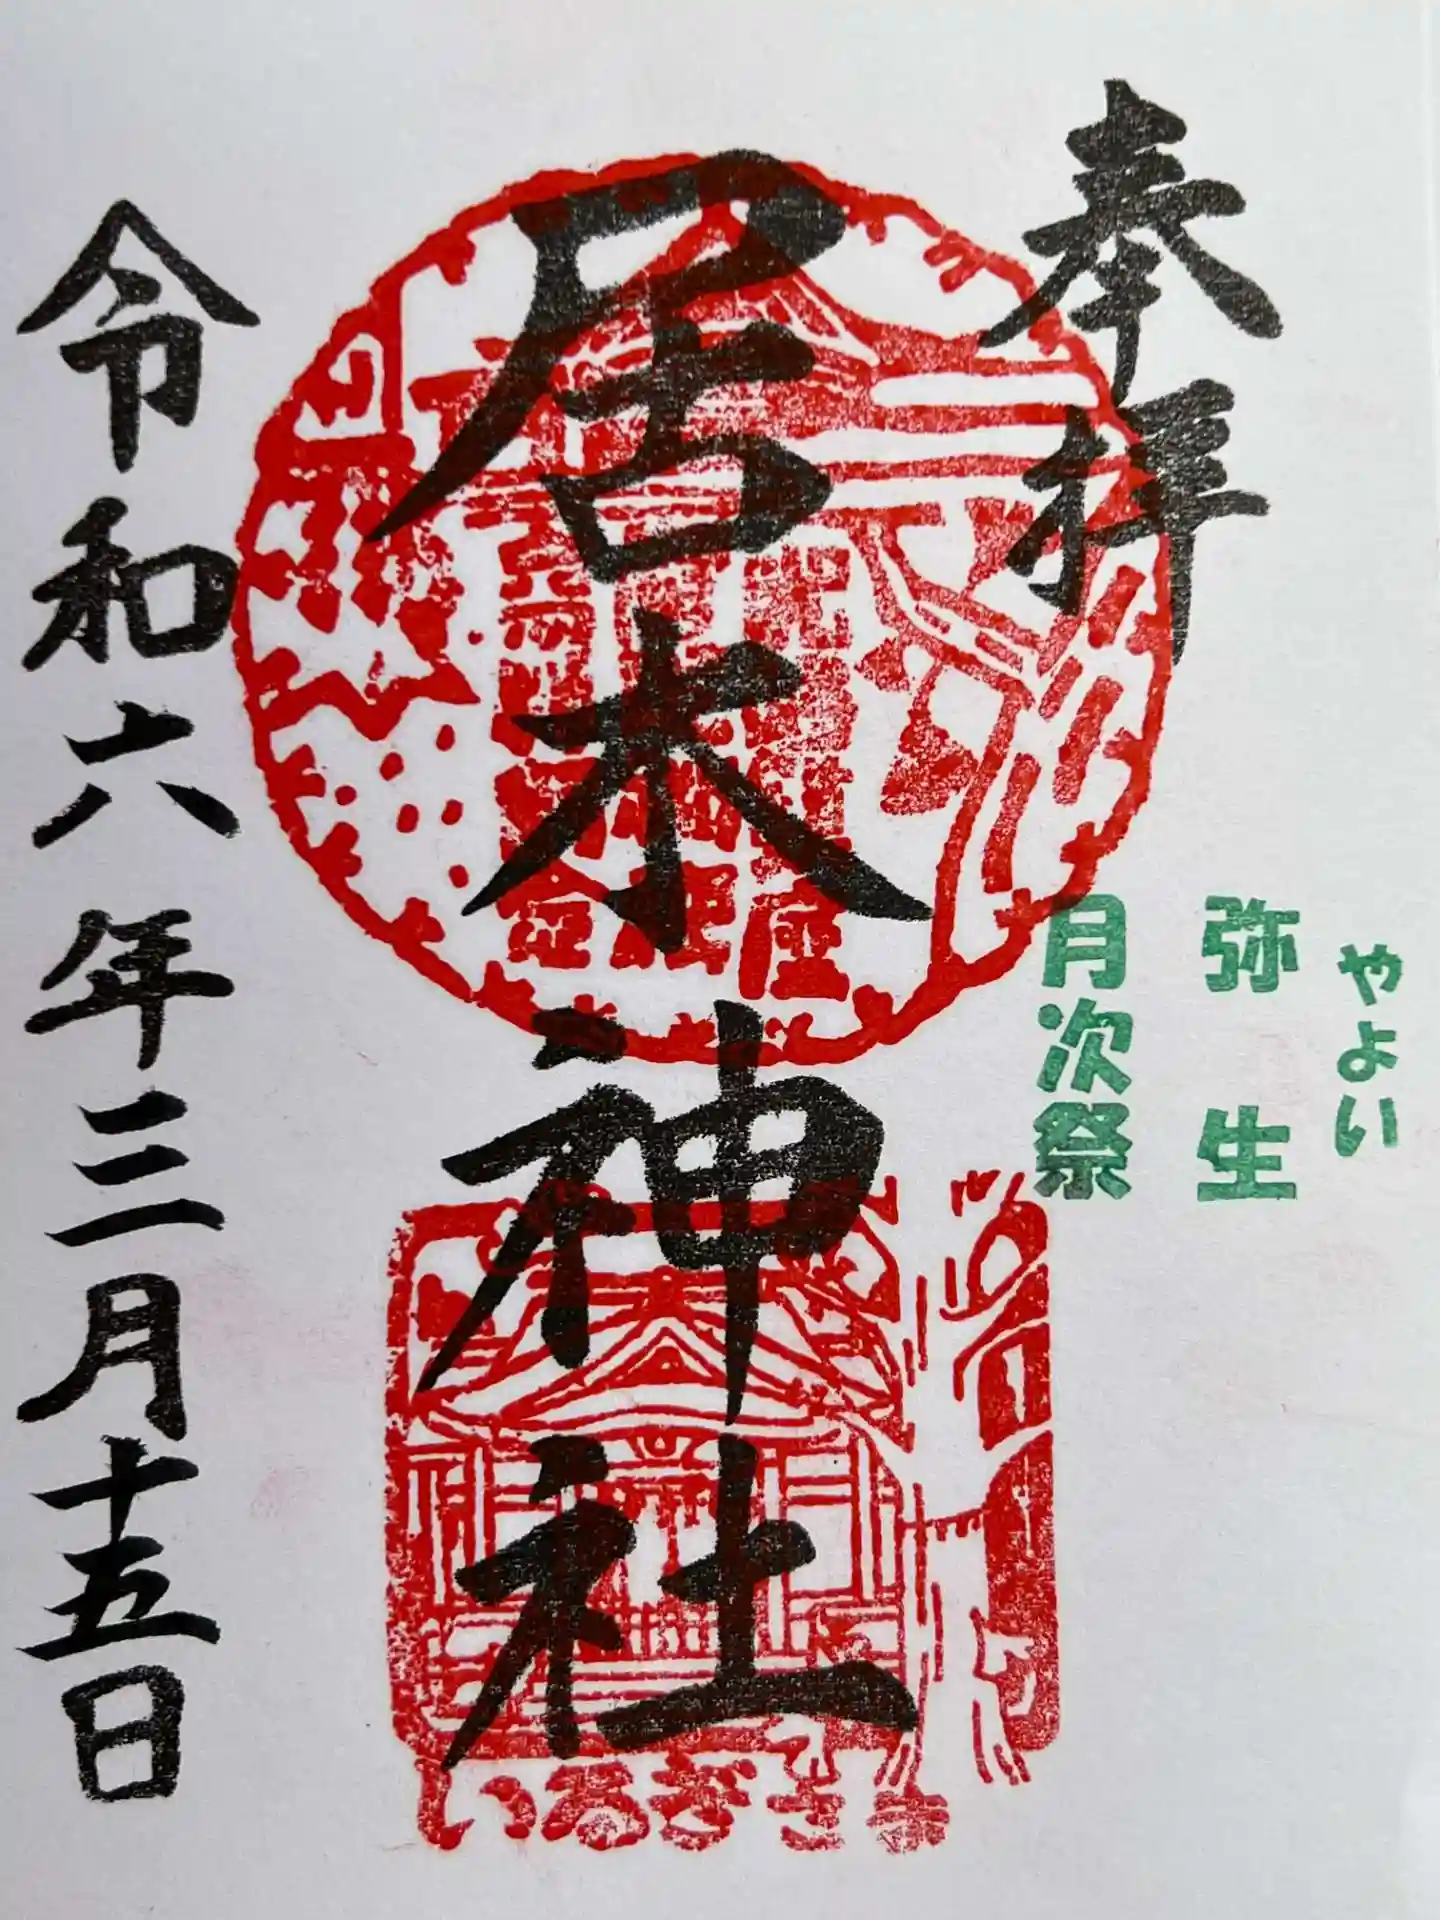 奉拝
やよい
弥生
月次祭
居木神社
いるぎさま
令和六年三月十五日